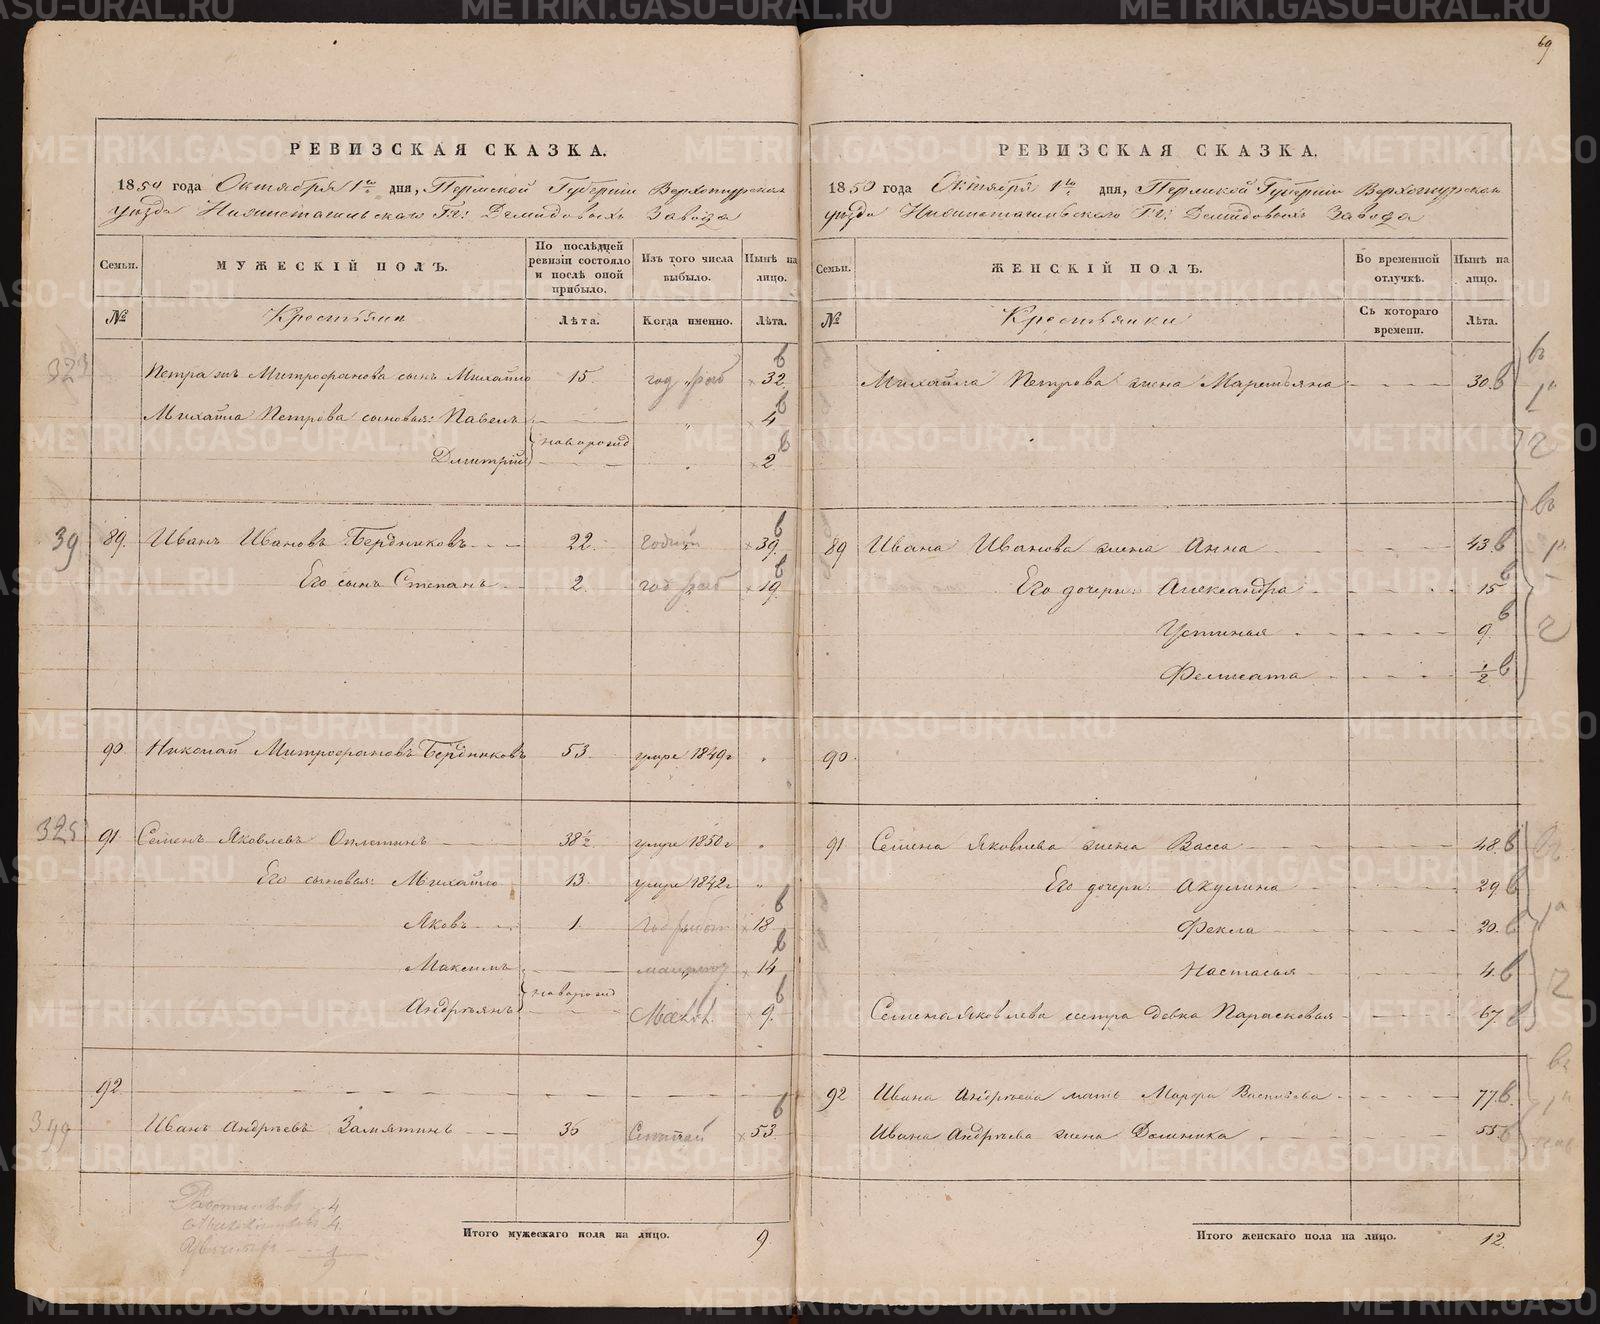 69
РЕВИЗСКАЯ СКАЗКА.
1850 года Октября 1го дня, Пермской Губерніи Верхотурскаго
уезда Нижнетагильскаго Гг: Демидовыхъ Завода
Семьи.
МУЖЕСКІЙ ПОЛЪ.
По послѣдней ревизіи состояло и послѣ оной прибыло.
Изъ того числа выбыло.
Нынѣ на лицо.
№
Крестьяне
Лѣта.
Когда именно.
Лѣта.
323 Митрофанова сынъ Михайло 15. год 32. в
Михайла Петрова сыновья: Павелъ 4 в
новорожд
Дмитрій 2 в
39 89. Иванъ Ивановъ Бердниковъ 22. годный 39. в
Его сынъ Степанъ 2. год раб 19. в
90. Николай Митрофановъ Бердниковъ 53. умре 1849г
325 91. Семенъ Яковлевъ Оплетинъ 38½ умре 1850г
Его сыновья: Михайло 13. умре 1842г
Яковъ 1. 18 в
Максимъ 14 в
новорожд
Андреянъ 9. в
92
399 Иванъ Андреевъ Замятинъ 36 53. в
4
4
Итого мужескаго пола на лицо. 9.
РЕВИЗСКАЯ СКАЗКА.
1850 года Октября 1го дня, Пермской Губерніи Верхотурскаго
уезда Нижнетагильскаго Гг: Демидовыхъ Завода
Семьи.
ЖЕНСКІЙ ПОЛЪ.
Во временной отлучкѣ.
Нынѣ на лицо.
№
Крестьянки
Съ котораго времени.
Лѣта.
Михайла Петрова жена Маремьяна 30. в
89 Ивана Иванова жена Анна 43. в
Его дочери: Александра 15 в
Устинья 9. в
Фелисата ½ в
90.
91 Семена Яковлева жена Васса 48. в
Его дочери: Акулина 29. в
Фекла 20. в
Настасья 4. в
Семена Яковлева сестра девка Парасковья 67. в
92 Ивана Андреева мать Марфа Васильева 77. в
Ивана Андреева жена Домника 55. в
Итого женскаго пола на лицо. 12.
METRIKI.GASO-URAL.RU